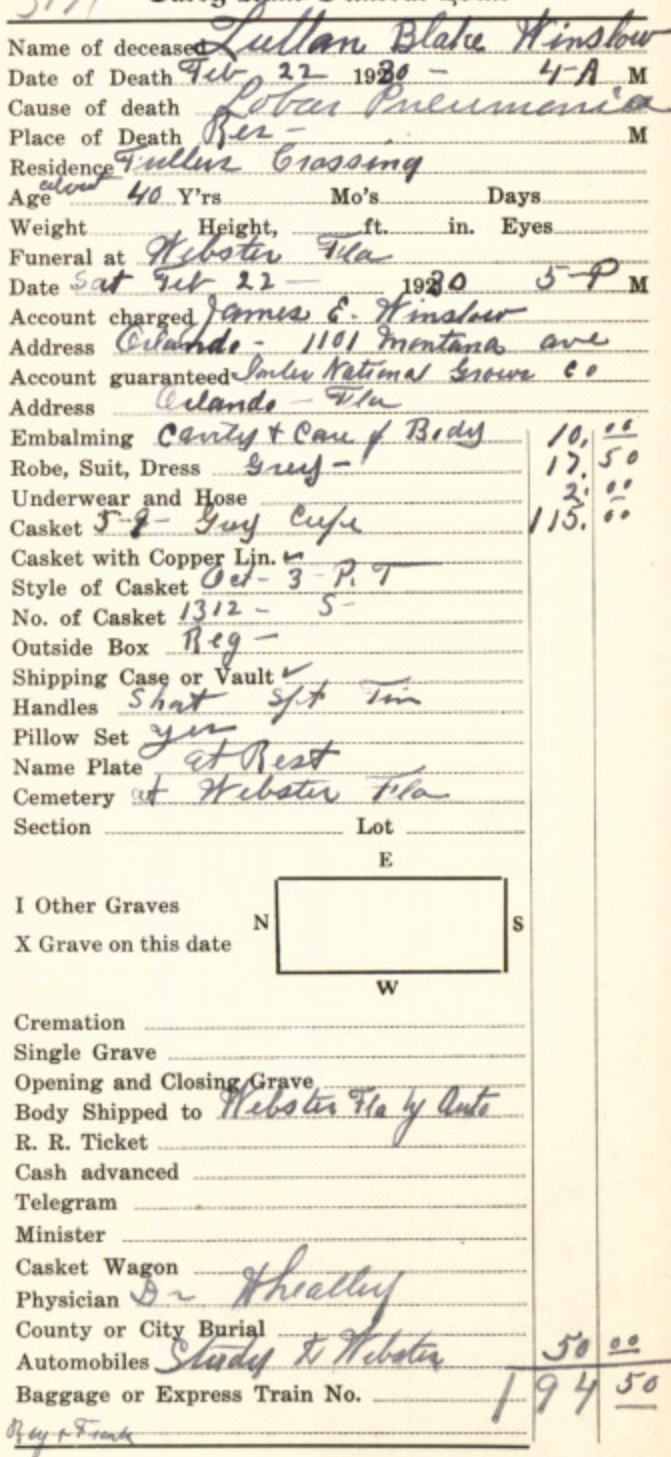 Name of deceased Luttan Blake Winslow
Date of Death Feb 22 1930 - 4-A M
Cause of death Lobar Pneumonia
Place of Death Res - M
Residence Fullers Crossing
Age about 40 Y'rs Mo's Days
Weight Height, ft. in. Eyes
Funeral at Webster Fla
Date Sat Feb 22 - 1930 5-P M
Account charged James E. Winslow
Address Orlando - 1101 Montana ave
Account guaranteed National Co
Address Orlando - Fla
Embalming Cavity & Care of Body 10.00
Robe, Suit, Dress Grey - 17.50
Underwear and Hose 2.00
Casket 5-9- Grey Crepe 115.00
Casket with Copper Lin. ✓
Style of Casket Oct - 3 - P. T
No. of Casket 1312 - S -
Outside Box Reg -
Shipping Case or Vault ✓
Handles Short Tin
Pillow Set yes
Name Plate at Rest
Cemetery at Webster Fla
Section Lot
E
I Other Graves
N S
X Grave on this date
W
Cremation
Single Grave
Opening and Closing Grave
Body Shipped to Webster Fla by Auto
R. R. Ticket
Cash advanced
Telegram
Minister
Casket Wagon
Physician Dr
County or City Burial
Automobiles Study to Webster 50 00
Baggage or Express Train No. 194 50
Ray & Frank